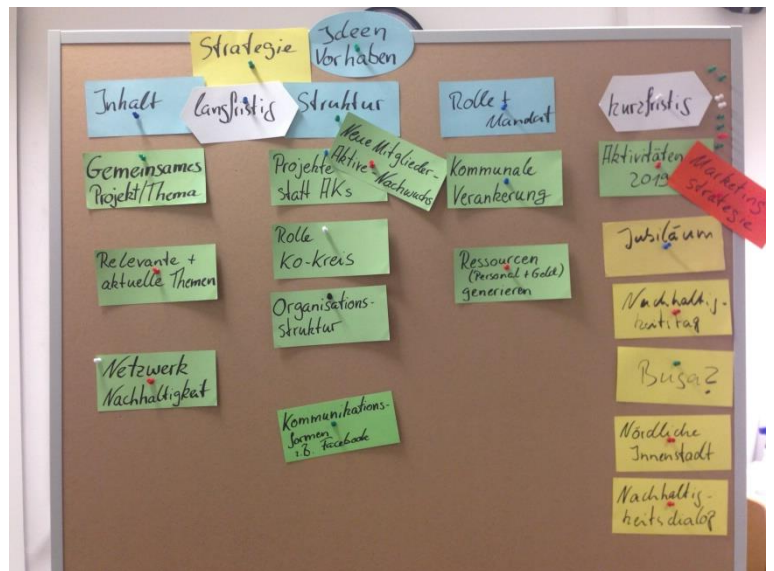 Strategie
Ideen
Vorhaben
Inhalt
langfristig
Struktur
Rolle +
Mandat
kurzfristig
Gemeinsames
Projekt/Thema
Relevante +
aktuelle Themen
Netzwerk
Nachhaltigkeit
Projekte
statt AKs
Neue Mitglieder-
Aktive-Nachwuchs
Rolle
Ko-Kreis
Organisations-
struktur
Kommunikations-
formen
z.B. Facebook
Kommunale
Verankerung
Ressourcen
(Personal + Geld)
generieren
Aktivitäten
2019
Marketing
strategie
Jubiläum
Nachhaltig-
keitstag
Buga?
Nördliche
Innenstadt
Nachhaltig-
keitsdialog